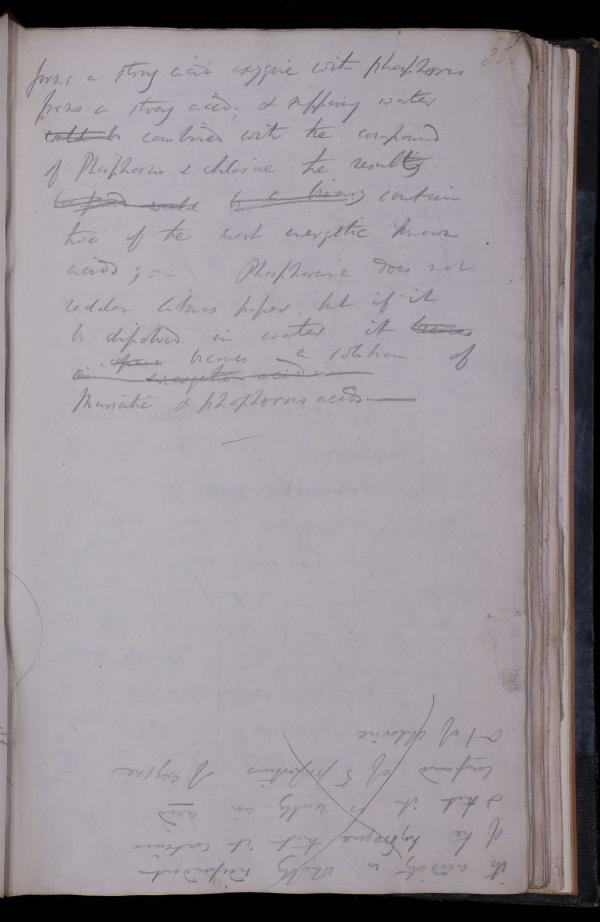 forms a strong acid oxygene with phosphorus
forms a strong acid; & supposing water
could be combined with the compound
of Phosphorus & chlorine the results
compound would be a binary contain
two of the most energetic known
acids ; – – Phosphorane does not
redden litmus paper, but if it
be dissolved in water it becomes
becomes a solution of
an energetic acid
Muriatic & phosphorous acids —
its acidity is wholly independent
of the hydrogene that it contains
& that it is really an acid
compound of 5 proportions of oxygene
& 1 of chlorine